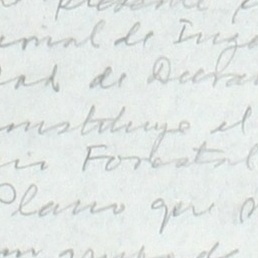 presente
de Inge
dad de Duran
constituye el
Forestal
Plano que
de